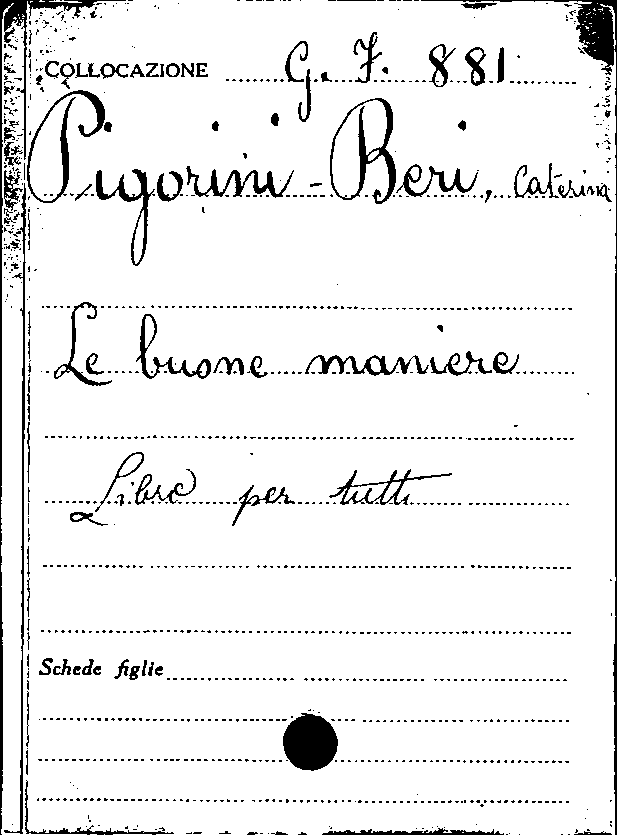 COLLOCAZIONE G. F. 881
Pigorini-Beri, Caterina
Le buone maniere
Libro per tutti
Schede figlie